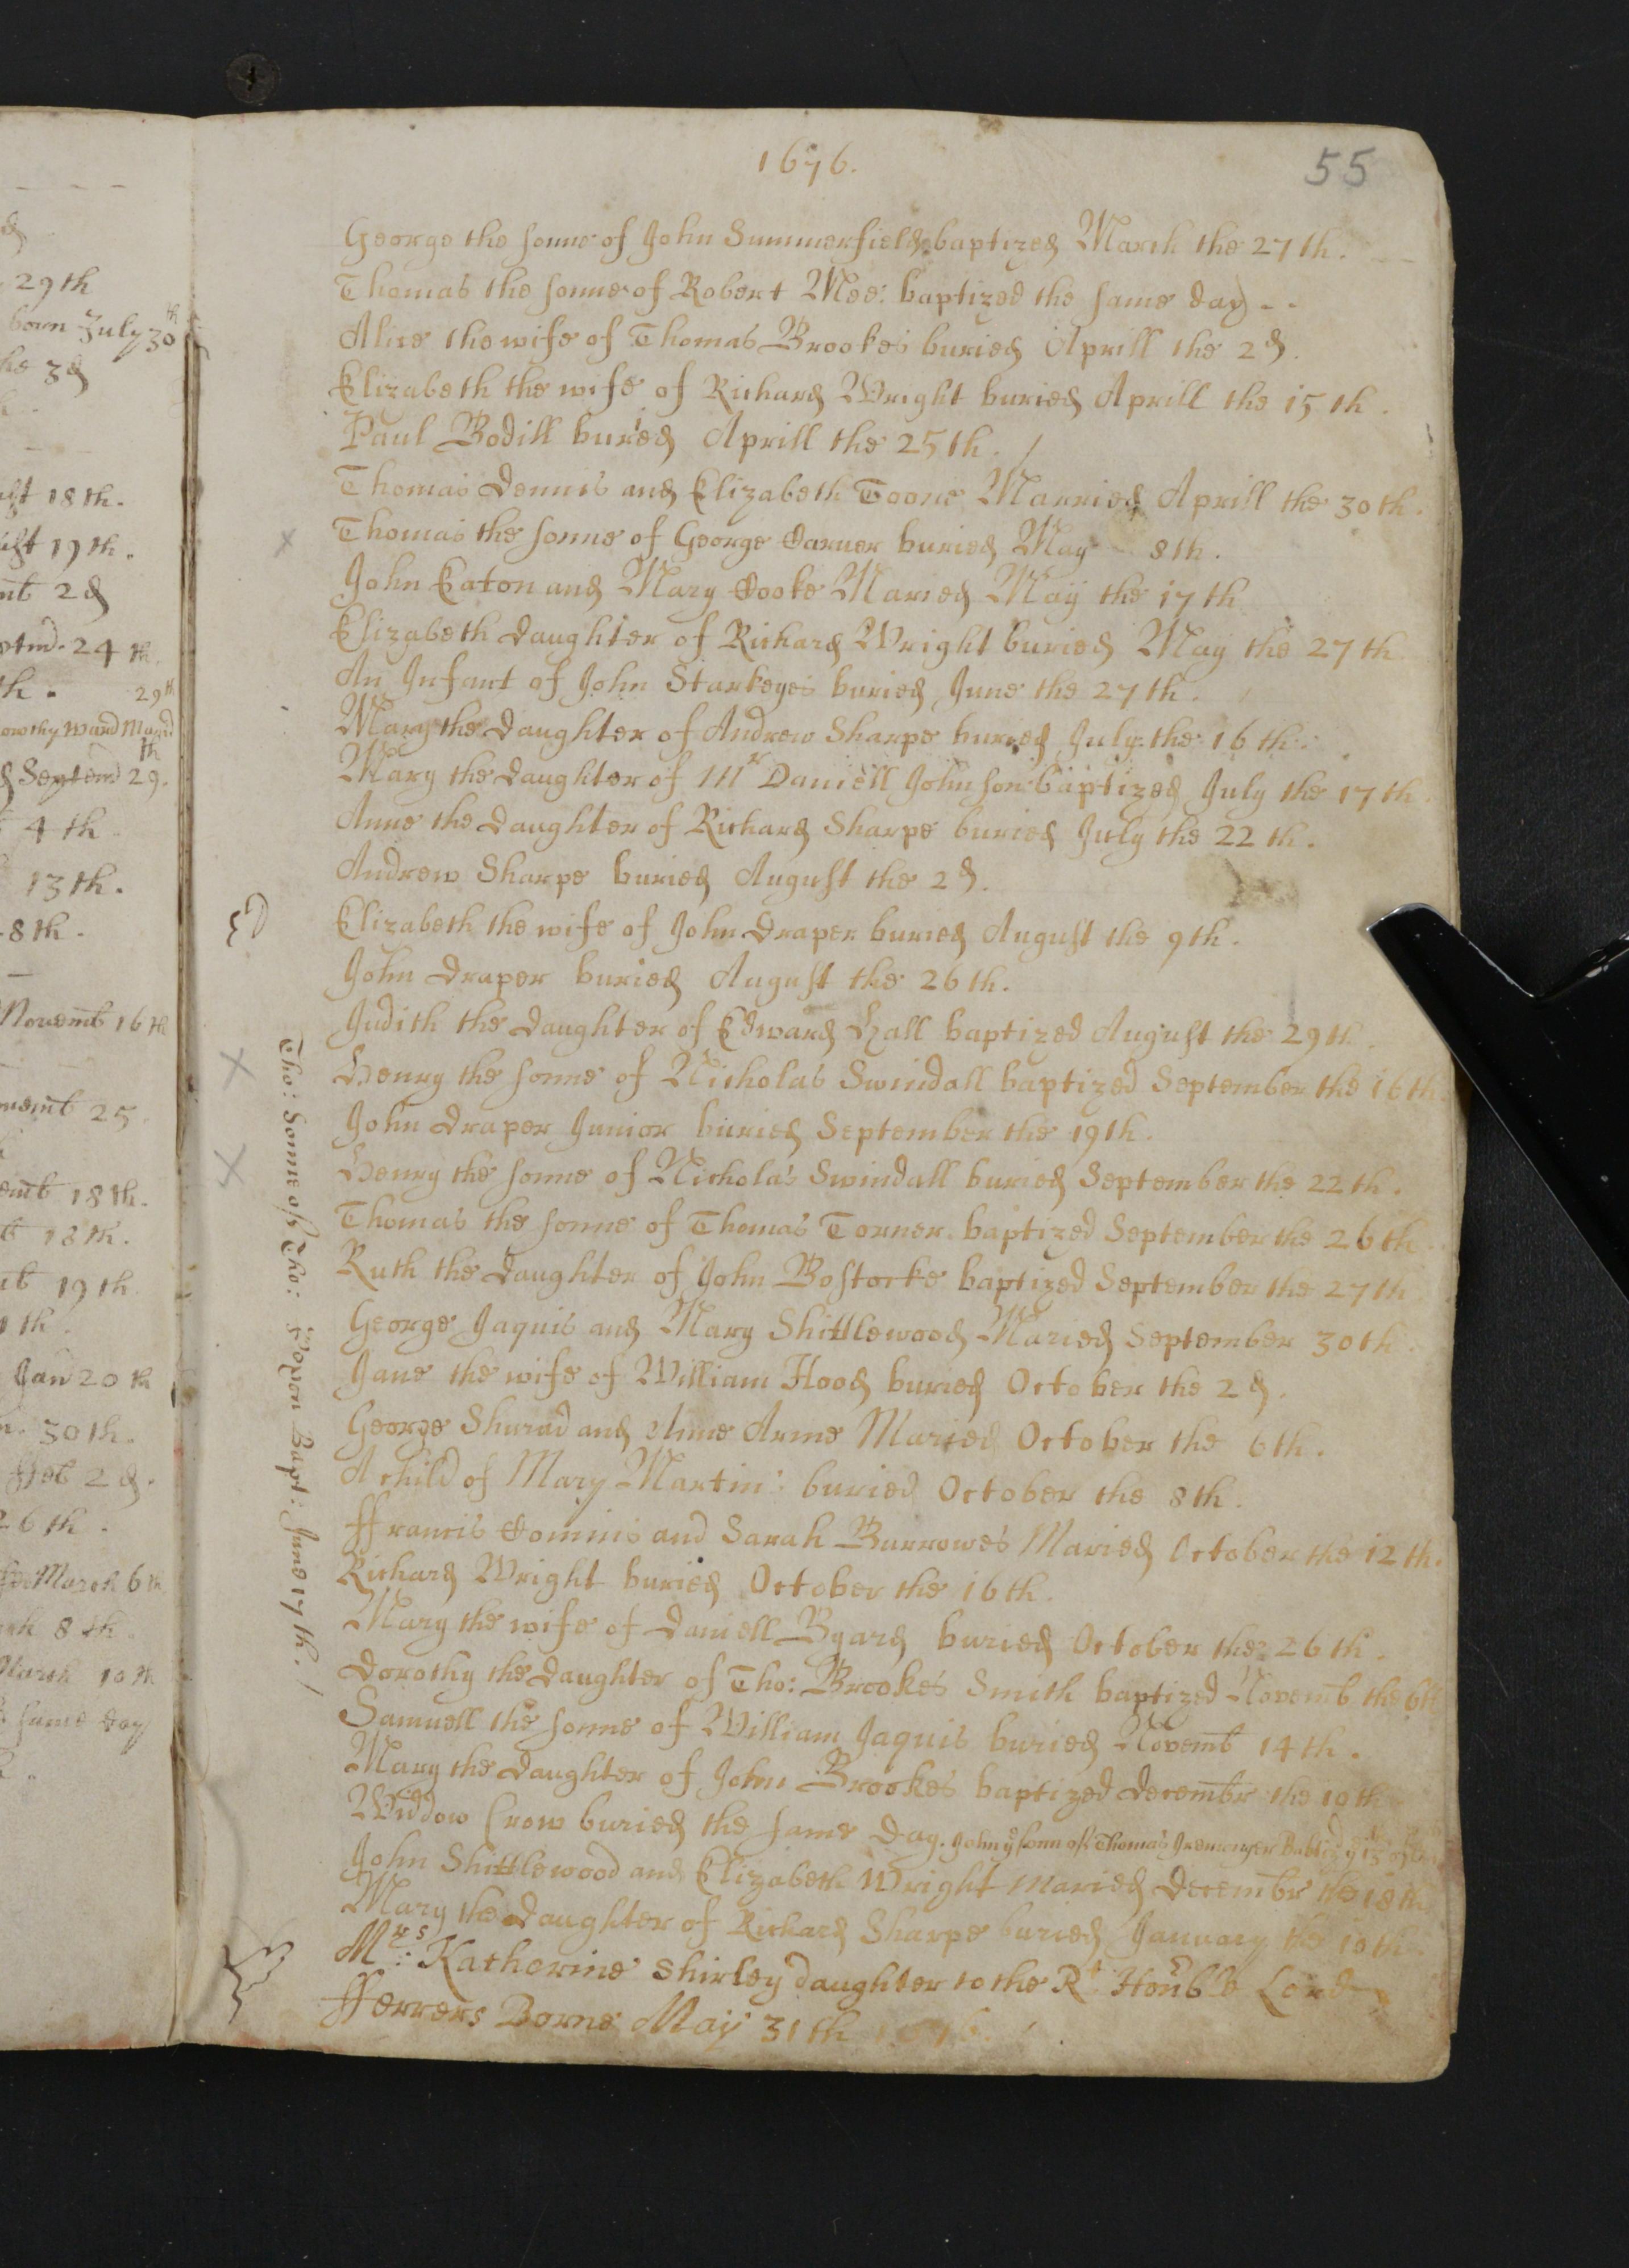 1676.
55
George the sonne of John Summerfield baptized March the 27th.
Thomas the sonne of Robert Mee: baptized the same day
Alice the wife of Thomas Brookes buried Aprill the 2d.
Elizabeth the wife of Richard Wright buried Aprill the 15th.
Paul Bodill buried Aprill the 25th.
Thomas Dennis and Elizabeth Toone Married Aprill the 30th.
Thomas the sonne of George buried May 8th.
John Eaton and Mary Cooke Maried May the 17th
Elizabeth daughter of Richard Wright buried May the 27th
An Infant of John Starkeyes buried June the 27th.
Mary the Daughter of Andrew Sharpe buried July the 16th
Mary the Daughter of Mr Daniell Johnson baptized July the 17th.
Anne the Daughter of Richard Sharpe buried July the 22th.
Andrew Sharpe buried August the 2d.
Elizabeth the wife of John Draper buried August the 9th.
John Draper buried August the 26th.
Judith the Daughter of Edward Hall baptized August the 29th.
Henry the sonne of Nicholas Swindall baptized September the 16th.
John Draper Junior buried September the 19th.
Henry the sonne of Nicholas Swindall buried September the 22th.
Thomas the sonne of Thomas Torner baptized September the 26th
Ruth the Daughter of John Bostocke baptized September the 27th
George Jaquis and Mary Shittlewood Maried September 30th.
Jane the wife of William Hood buried October the 2d.
George Shurad and Anne Arme Maried October the 6th.
A child of Mary Martin: buried October the 8th.
ffrancis and Sarah Burrowes Maried October the 12th.
Richard Wright buried October the 16th.
Mary the wife of Daniell Byard buried October the 26th.
Dorothy the Daughter of Tho: Brookes Smith baptized Novemb the 6th
Samuell the sonne of William Jaquis buried Novemb 14th.
Mary the Daughter of John Brookes baptized Decembr the 10th
Widdow Crow buried the same Day. John ye sonn of Thomas
John Shittlewood and Elizabeth Wright Maried Decembr the 18th
Mary the Daughter of Richard Sharpe buried January the 10th.
Mrs: Katherine Shirley daughter to the Rt Honble Lord
fferrers Borne May 31th 1676.
Tho: Sonne of Tho: Bapt: June 17th.
29th
born July 30th
he 3d
18th.
19th.
2d
24th.
th. 29th
Septemb 29.
4th
13th.
8th.
Novemb 16th
25.
18th.
18th.
19th
Jan 20th
30th.
ffeb 2d.
26th.
March 6th
8th
March 10th
same day